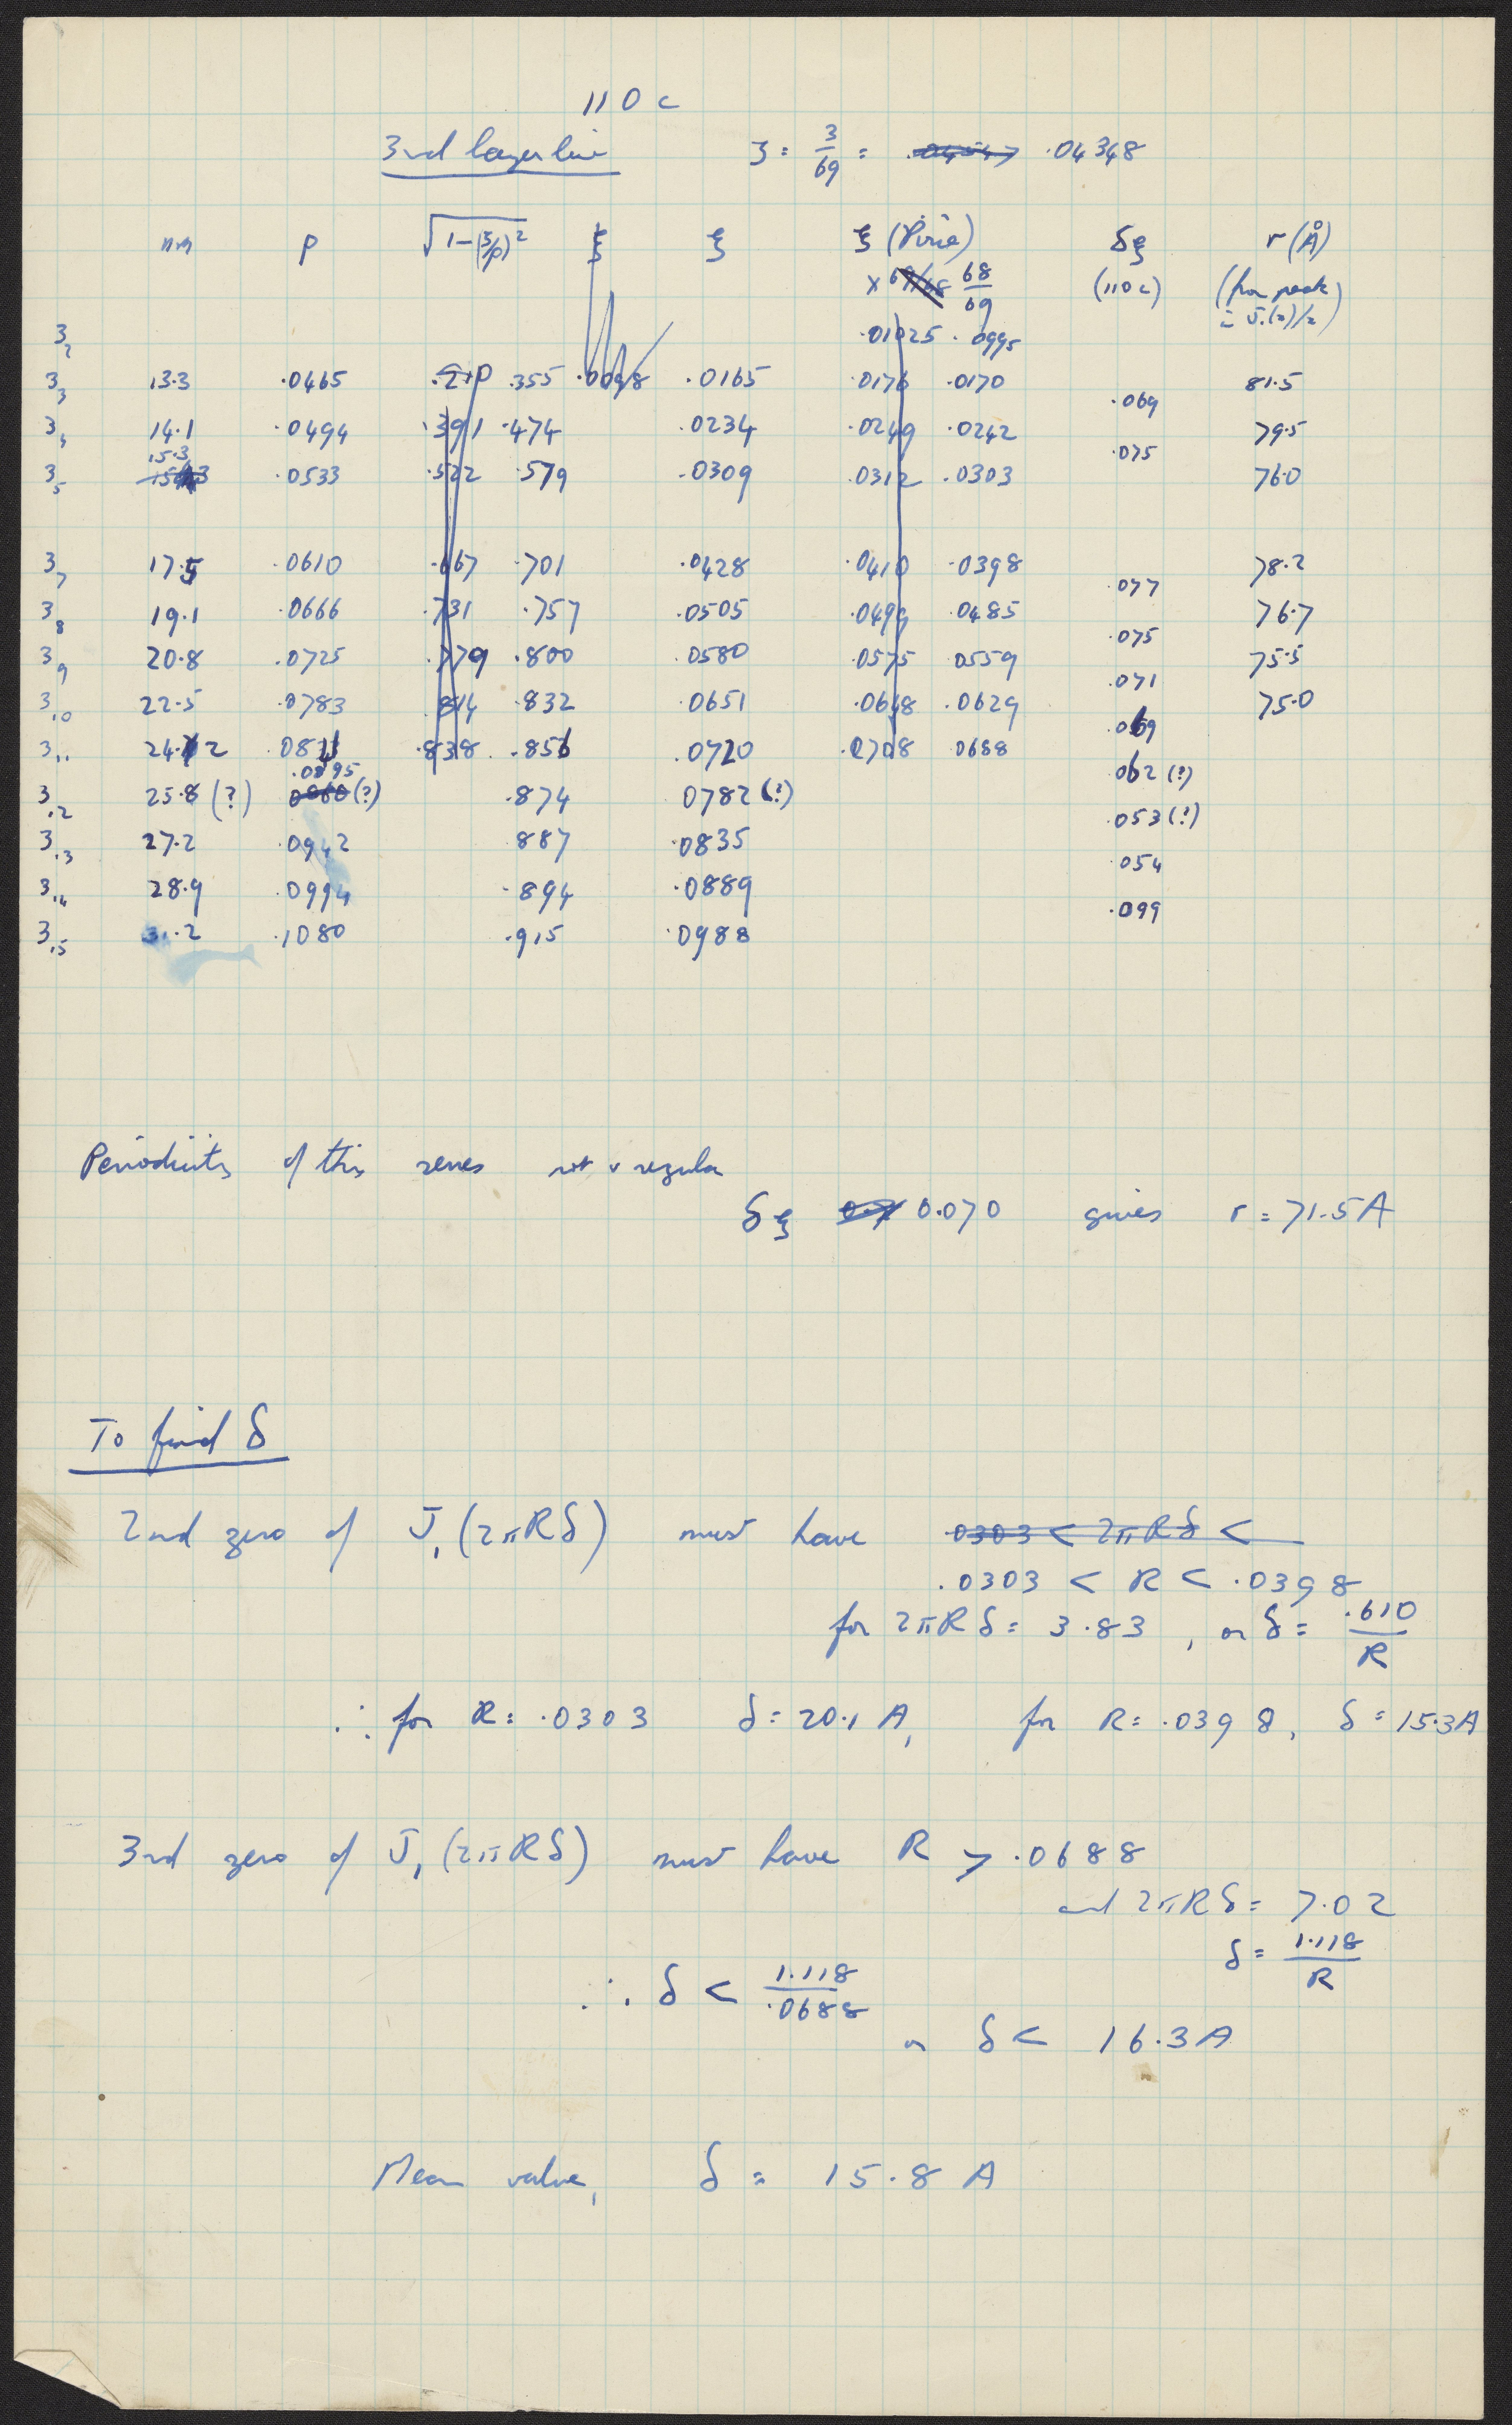 110 c
3rd layer line ζ = 3/69 = .04348
mm ρ √1-(ζ/ρ)² ξ ξ ξ (Pirie) δξ r (Å)
× 69/68 68/69 (110 c) (from peak
in J₁(z)/z)
3₂ .01025 .0995
3₃ 13.3 .0465 .210 .355 .0098 .0165 .0176 .0170 81.5
.069
3₄ 14.1 .0494 .391 .474 .0234 .0249 .0242 79.5
15.3 .075
3₅ .0533 .522 .579 .0309 .0312 .0303 76.0
3₇ 17.5 .0610 .667 .701 .0428 .0410 .0398 78.2
.077
3₈ 19.1 .0666 .731 .757 .0505 .0499 .0485 76.7
.075
3₉ 20.8 .0725 .779 .800 .0580 .0575 .0559 75.5
.071
3₁₀ 22.5 .0783 .814 .832 .0651 .0648 .0629 75.0
.069
3₁₁ 24.2 .0841 .838 .856 .0720 .0708 .0688
.0895 .062 (?)
3₁₂ 25.8 (?) (?) .874 0782 (?)
.053 (?)
3₁₃ 27.2 .0942 .887 .0835
.054
3₁₄ 28.9 .0994 .894 .0889
.099
3₁₅ 31.2 .1080 .915 .0988
Periodicity of this series not v regular
δξ 0.070 gives r = 71.5 A
To find δ
2nd zero of J₁(2πRδ) must have .0303 < 2πRδ <
.0303 < R < .0398
for 2πRδ = 3.83, or δ = .610/R
∴ for R = .0303 δ = 20.1 A, for R = .0398, δ = 15.3A
3rd zero of J₁(2πRδ) must have R > .0688
and 2πRδ = 7.02
δ = 1.118/R
∴ δ < 1.118/.0688
or δ < 16.3 A
Mean value, δ = 15.8 A